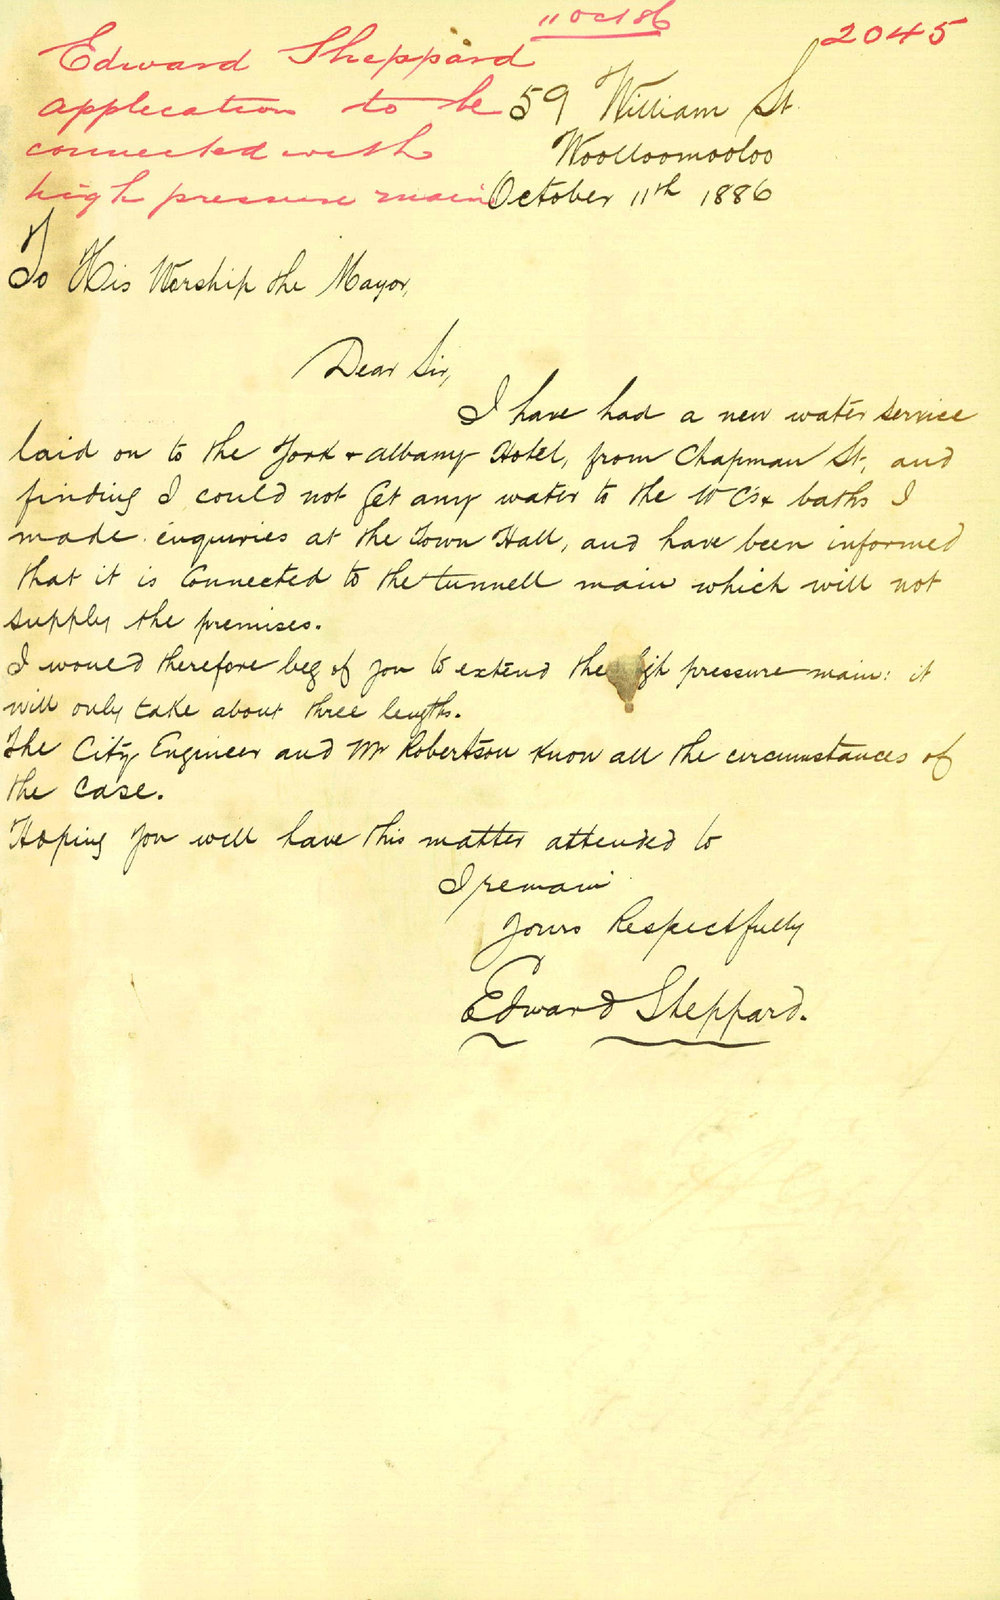 11 Oct 86
2045
Edward Sheppard
application to be
connected with
high pressure main
59 William St.
Woolloomooloo
October 11th 1886
To His Worship the Mayor,
Dear Sir,
I have had a new water service
laid on to the York & Albany Hotel, from Chapman St, and
finding I could not get any water to the W C's & baths I
made enquiries at the Town Hall, and have been informed
that it is connected to the tunnell main which will not
supply the premises.
I would therefore beg of you to extend the high pressure main: it
will only take about three lengths.
The City Engineer and Mr Robertson know all the circumstances of
the case.
Hoping you will have this matter attended to
I remain
Yours Respectfully
Edward Sheppard.